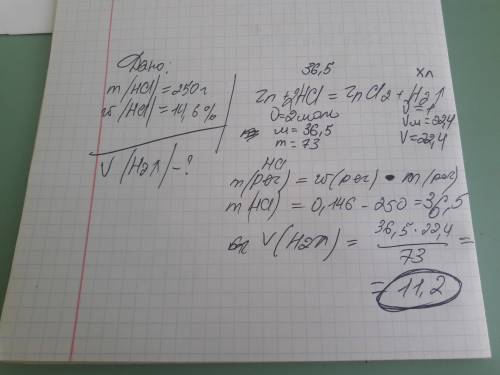 Дано:
m (HCl) = 250 г
w (HCl) = 14,6 %
V (H2↑) - ?
36,5
хл
Zn + 2HCl = ZnCl2 + H2↑
υ=2моль
υ=1
м = 36,5
Vм=22,4
m = 73
V=22,4
HCl
m(рег) = w(рег) • m(рег)
m(HCl) = 0,146 - 250 = 36,5
V(H2↑) = 36,5 · 22,4 / 73 =
= 11,2